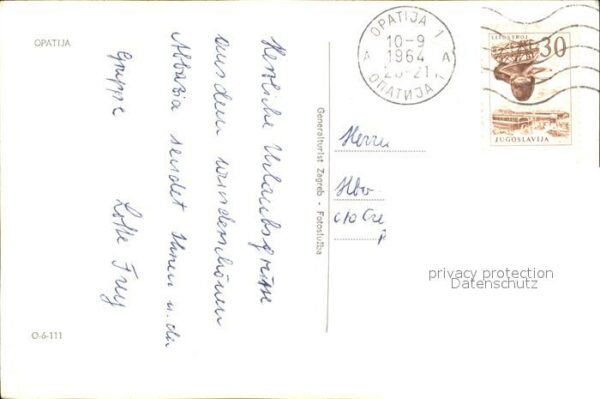 OPATIJA
Herzliche Urlaubsgrüsse
aus dem wunderschönen
Abbazia sendet Ihnen u. der
Gruppe
Lotte Frey
O-6-111
Generalturist Zagreb - Fotoslužba
OPATIJA 1
A 10-9 A
1964
20-21
ОПАТИЈА 1
30
JUGOSLAVIJA
Herrn
c/o
privacy protection
Datenschutz